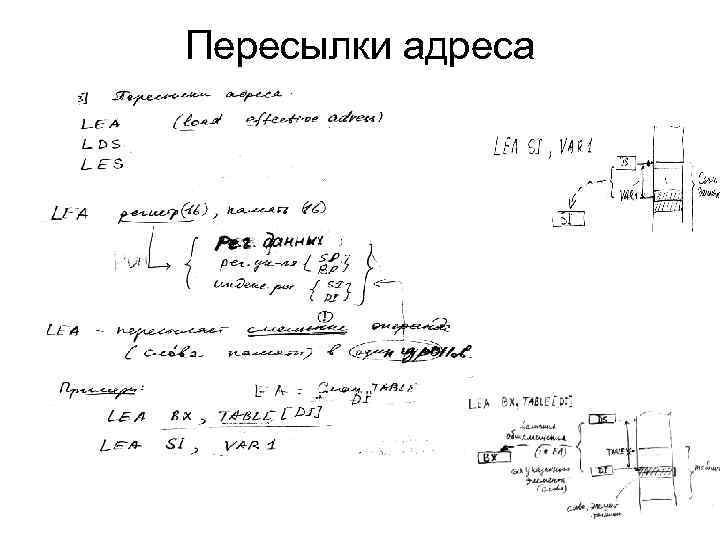 Пересылки адреса
3) Пересылки адреса.
LEA (load effective adress)
LDS
LES
LEA SI, VAR1
B
VAR1
SI
LEA регистр(16), память (16)
РОН
Рег. данных
рег. ук-ля { SP, BP }
индекс. рег { SI, DI }
LEA - пересылает смещение операнда
(слова памяти) в один из РОНов.
Примеры: EA = TABLE
DI
LEA BX, TABLE[DI]
LEA SI, VAR1
LEA BX, TABLE[DI]
DS
TABLE
(EA)
BX
DI